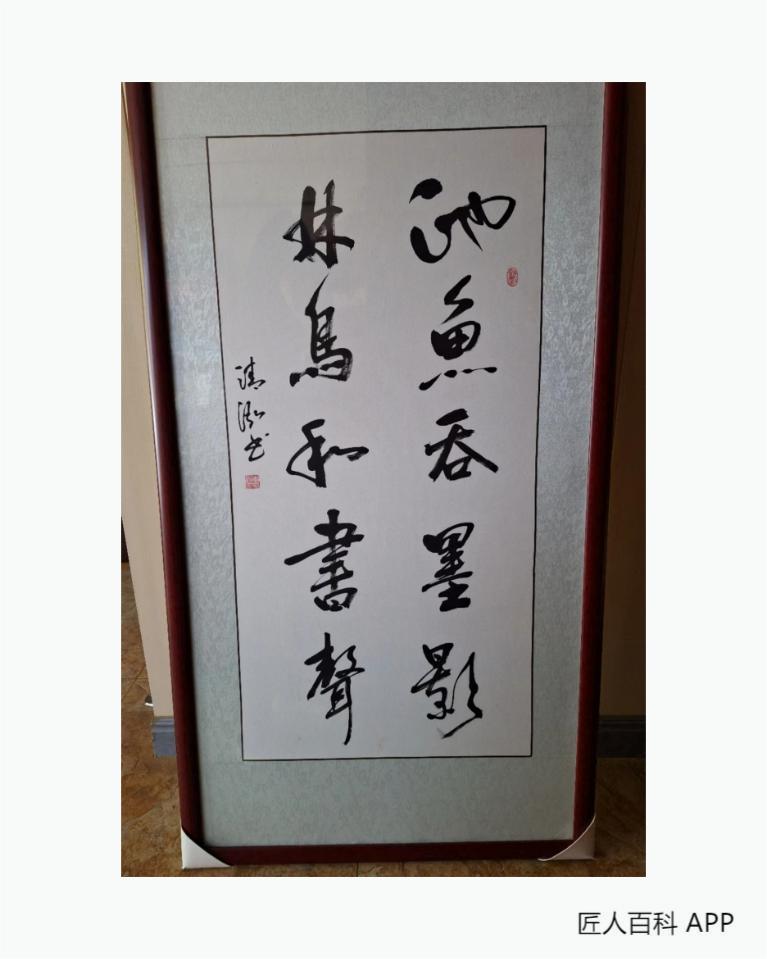 池魚吞墨影
林鳥和書聲
清泓书
匠人百科 APP